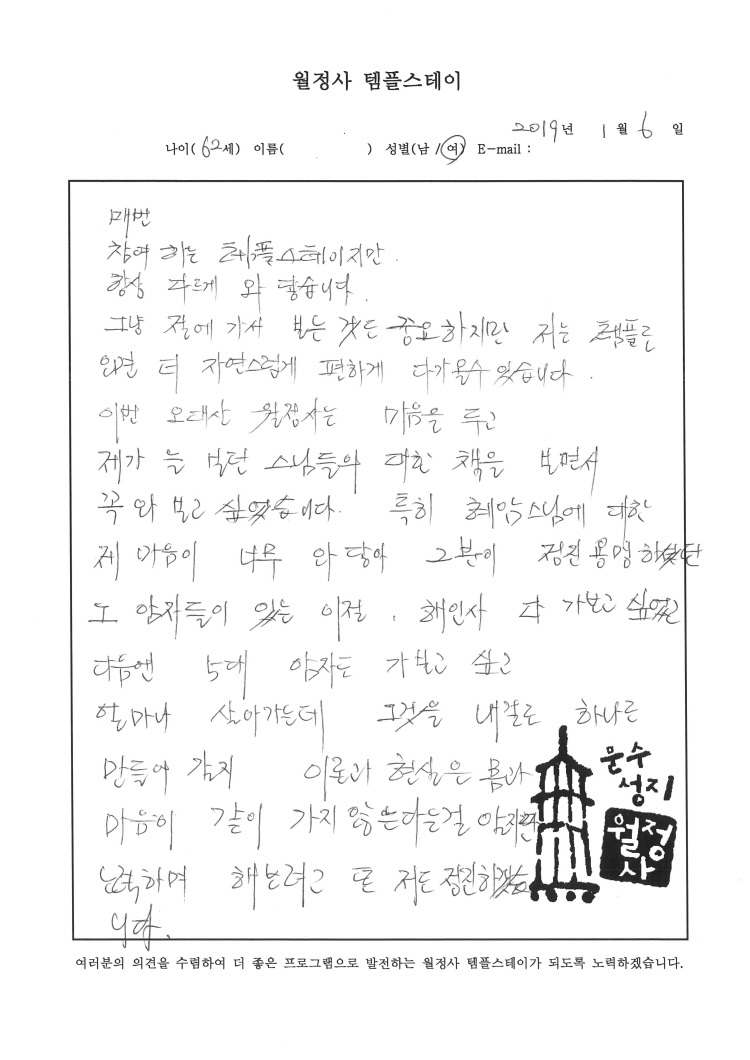 월정사 템플스테이
2019년 1월 6일
나이(62세) 이름( ) 성별(남/여) E-mail :
매번
참여 하는 템플스테이지만.
항상 다르게 와 닿습니다.
그냥 절에 가서 보는 것도 중요하지만 저는 템플은
더 자연스럽게 편하게 다가올수 있습니다.
이번 오대산 월정사는 마음을 두고
제가 늘 스님들의 대한 책을 보면서
꼭 와 보고 싶었습니다. 특히 혜암스님에 대한
제 마음이 너무 와 닿아 그분이 정진 용맹 하셨던
도 암자들이 있는 이절, 해인사 다 가보고 싶었고
다음엔 5대 암자도 가보고 싶고
얼마나 살아가는데 그것을 내걸로 하나로
만들어 갈지 이론과 현실은 몸과
마음이 같이 가지 않는다는걸 알지만
노력하며 해보려고 또 저도 정진하겠습
니다.
문수
성지
월정
사
여러분의 의견을 수렴하여 더 좋은 프로그램으로 발전하는 월정사 템플스테이가 되도록 노력하겠습니다.